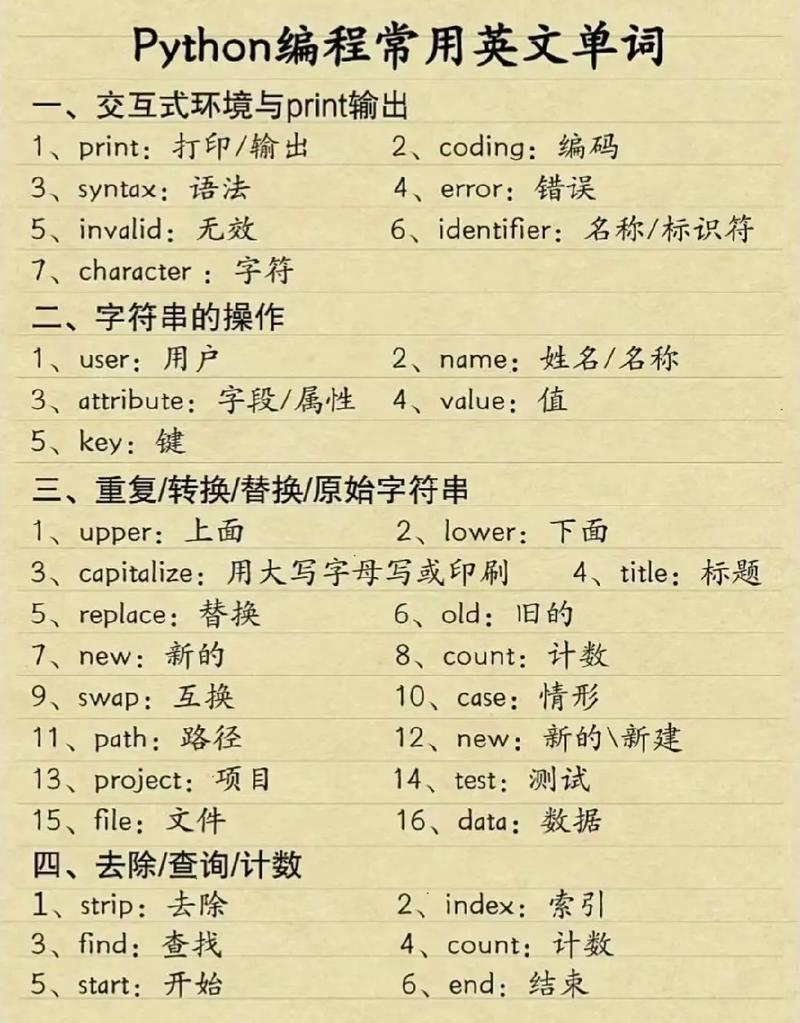 Python编程常用英文单词
一、交互式环境与print输出
1、print：打印/输出 2、coding：编码
3、syntax：语法 4、error：错误
5、invalid：无效 6、identifier：名称/标识符
7、character：字符
二、字符串的操作
1、user：用户 2、name：姓名/名称
3、attribute：字段/属性 4、value：值
5、key：键
三、重复/转换/替换/原始字符串
1、upper：上面 2、lower：下面
3、capitalize：用大写字母写或印刷 4、title：标题
5、replace：替换 6、old：旧的
7、new：新的 8、count：计数
9、swap：互换 10、case：情形
11、path：路径 12、new：新的\新建
13、project：项目 14、test：测试
15、file：文件 16、data：数据
四、去除/查询/计数
1、strip：去除 2、index：索引
3、find：查找 4、count：计数
5、start：开始 6、end：结束